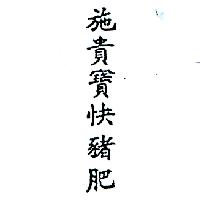 施貴寶快豬肥